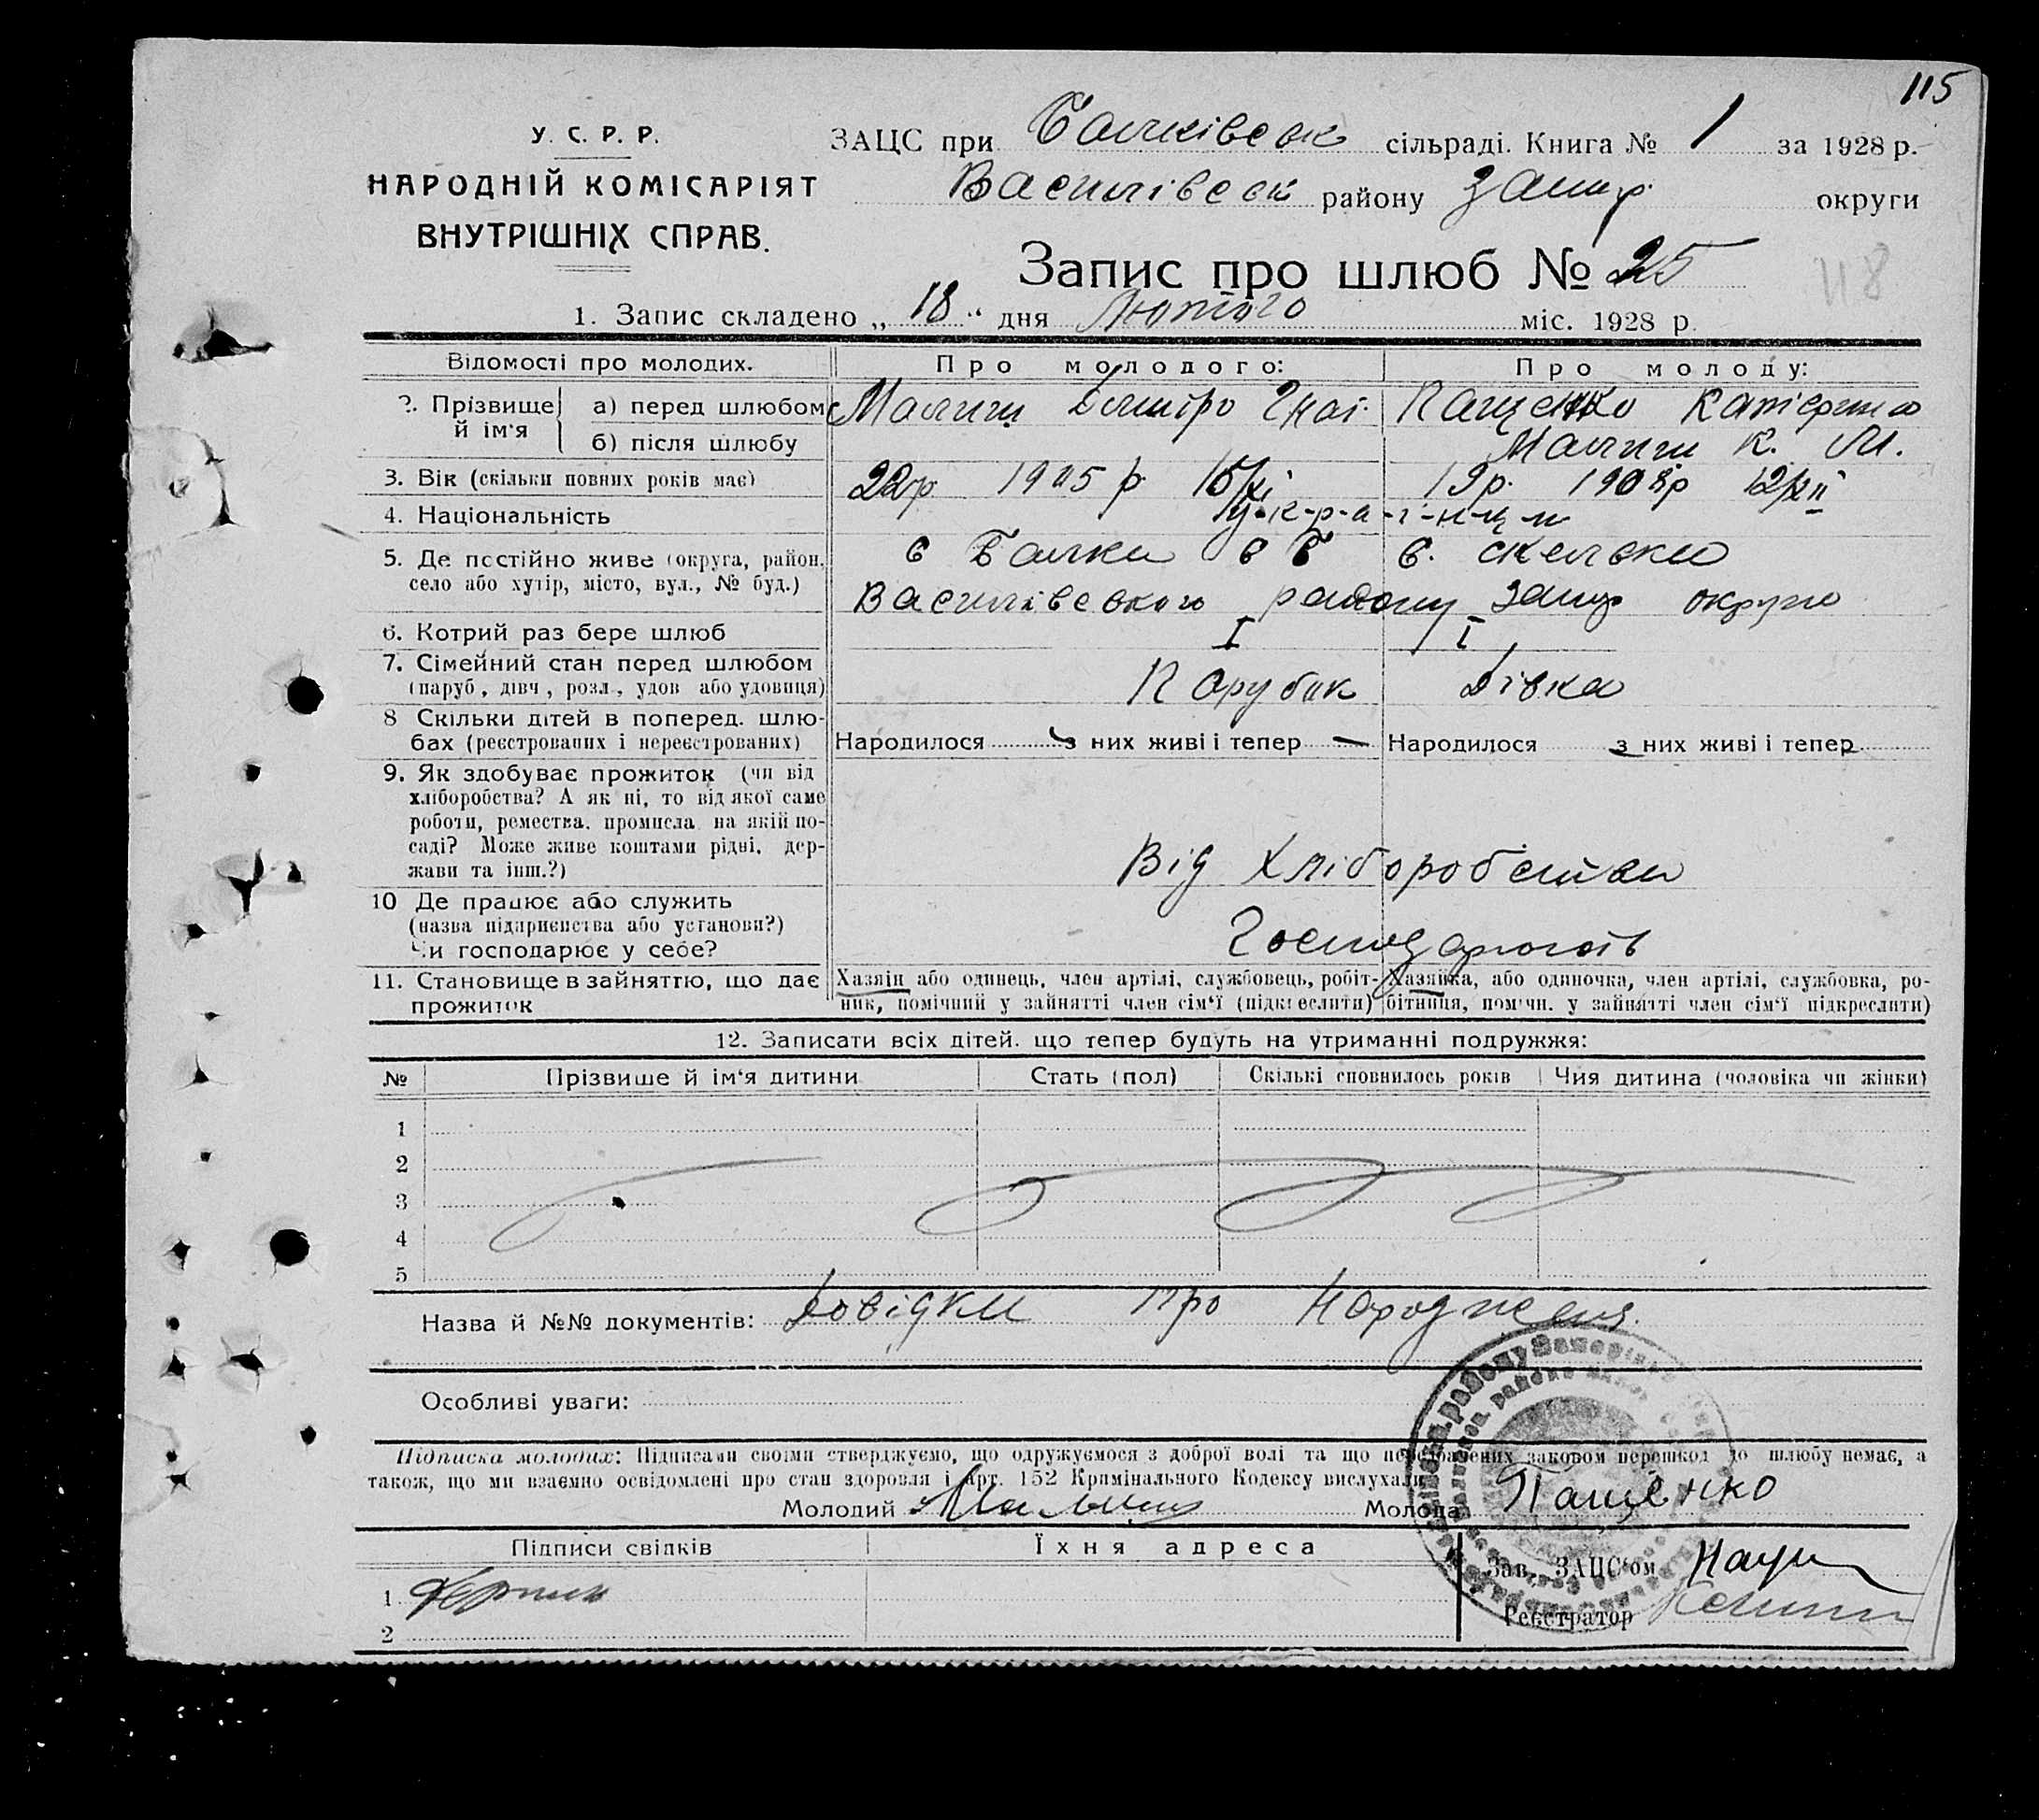 115
У. С. Р. Р.
НАРОДНІЙ КОМІСАРІЯТ
ВНУТРІШНІХ СПРАВ.
ЗАЦС при Балківськ сільраді. Книга № 1 за 1928 р.
Василівськ району Запор округи
Запис про шлюб № 25
118
1. Запис складено „ 18 “ дня Лютого міс. 1928 р.
Відомості про молодих. Про молодого: Про молоду:
2. Прізвище й ім'я а) перед шлюбом Малиш Дмитро Гнат. Пащенко Катерина
б) після шлюбу Малиш К. М.
3. Вік (скільки повних років має) 22 р 1905 р 15/XI 19 р. 1908 р 12/XII
4. Національність У-к-р-а-ї-н-ц-и
5. Де постійно живе (округа, район, с Балки с. Скельки
село або хутір, місто, вул., № буд.) Василівського району Запор округи
6. Котрий раз бере шлюб I I
7. Сімейний стан перед шлюбом
(паруб., дівч., розл., удов або удовиця) Парубок Дівка
8 Скільки дітей в поперед. шлю-
бах (реєстрованих і нереєстрованих) Народилося — з них живі і тепер — Народилося — з них живі і тепер
9. Як здобуває прожиток (чи від
хліборобства? А як ні, то від якої саме
роботи, ремества, промисла на якій по-
саді? Може живе коштами рідні, дер-
жави та інш.?) Від хліборобства
10 Де працює або служить
(назва підприємства або установи?)
Чи господарює у себе? Господарюють
11. Становище в зайняттю, що дає Хазяїн або одинець, член артілі, службовець, робіт- Хазяйка, або одиночка, член артілі, службовка, ро-
прожиток ник, помічний у зайнятті член сім'ї (підкреслити) бітниця, помічн. у зайнятті член сім'ї підкреслити)
12. Записати всіх дітей, що тепер будуть на утриманні подружжя:
№ Прізвище й ім'я дитини Стать (пол) Скількі сповнилось років Чия дитина (чоловіка чи жінки)
1
2
3
4
5
Назва й №№ документів: Довідки про народження.
Особливі уваги:
Підписка молодих: Підписами своїми стверджуємо, що одружуємося з доброї волі та що передбачених законом перешкод до шлюбу немає, а
також, що ми взаємно освідомлені про стан здоровля і арт. 152 Крімінального Кодексу вислухали
Молодий Малиш Молода Пащенко
Підписи свідків Їхня адреса
Зав. ЗАЦС'ом
1
Реєстратор
2